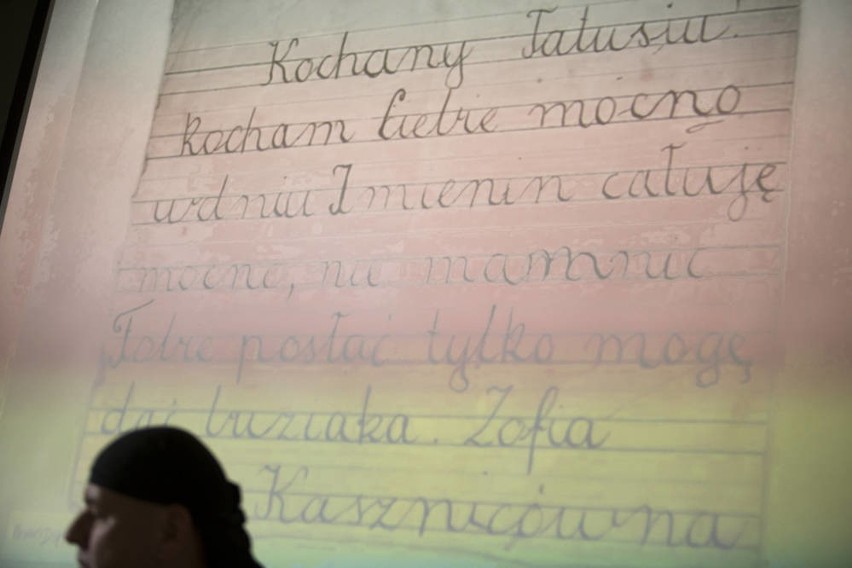 Kochany Tatusiu!
kocham Ciebie mocno
wdniu Imienin całuję
mocno, nic mamnić
Tobie posłać tylko mogę
dać buziaka. Zofia
Kasznicówna